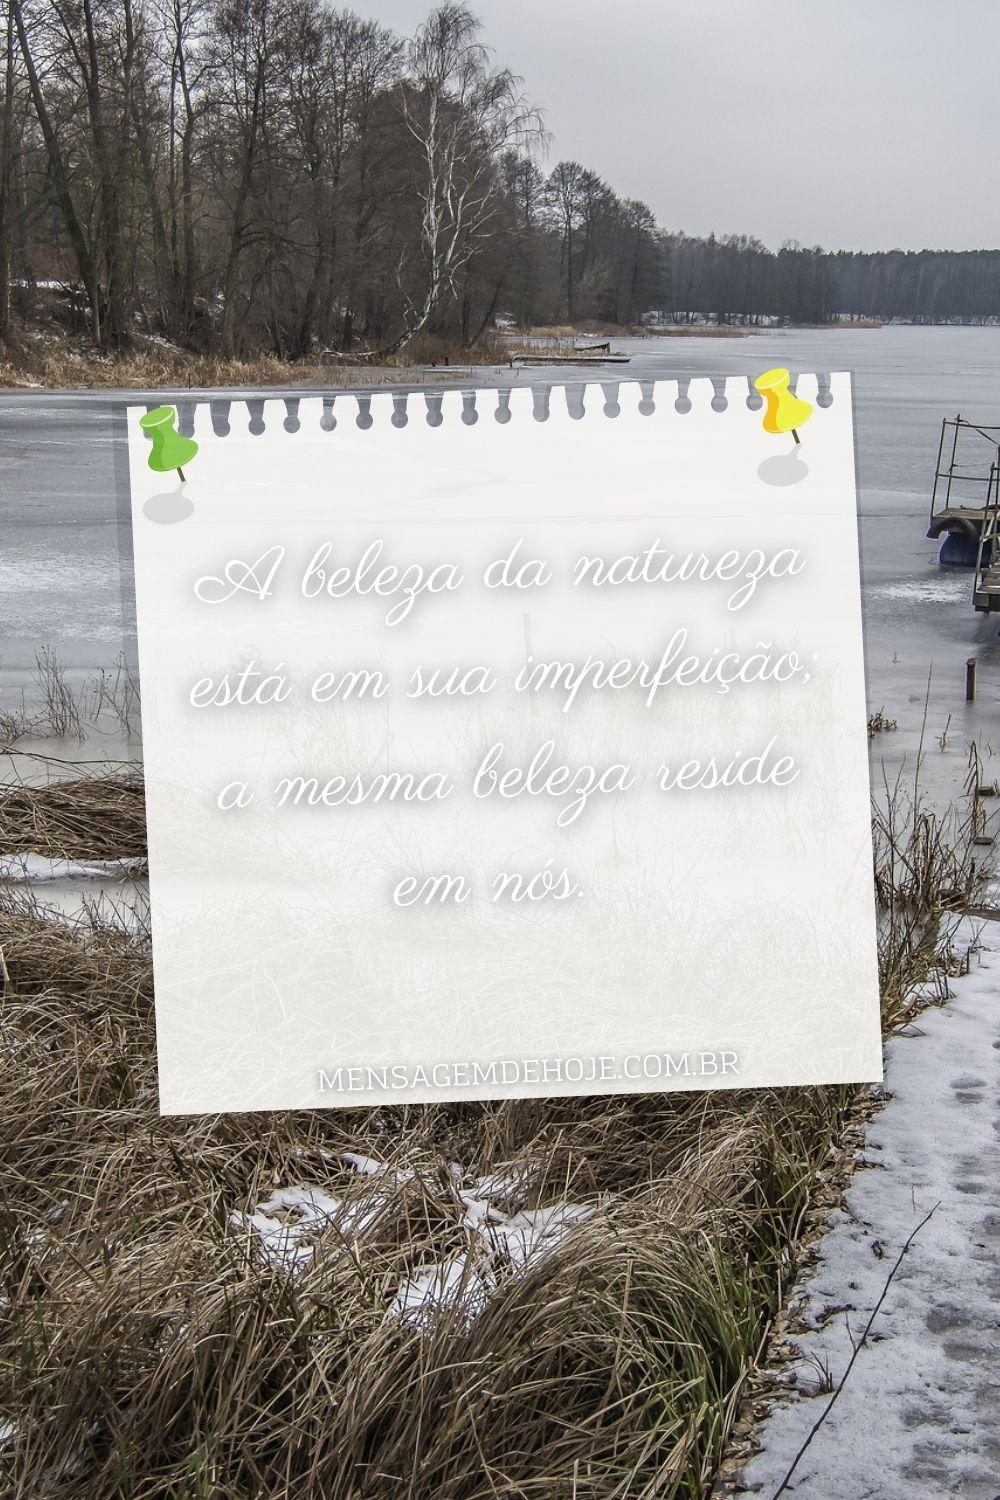 A beleza da natureza
está em sua imperfeição;
a mesma beleza reside
em nós.
MENSAGEMDEHOJE.COM.BR